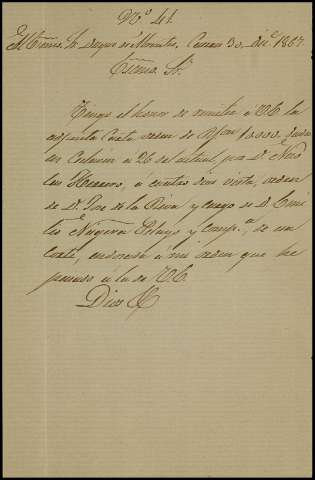 Nº 41.
Al Excmo. Sr. Duque de Montpr. Caracas 30, dic.e 1867
Excmo. Sr.
Tengo el honor de remitir á VE la
adjunta Carta orden de Rfon 10.000, dada
en Calanas a 26 del actual, por Dn. Nico
las Herrero, á cuatro dias vista, orden
de D. José de la Riva y cargo de D. Emi
lio Noguera Pelayo y Comp.a, de esa
Corte, endosada á mi orden que he
pasado á la de VE.
Dios &